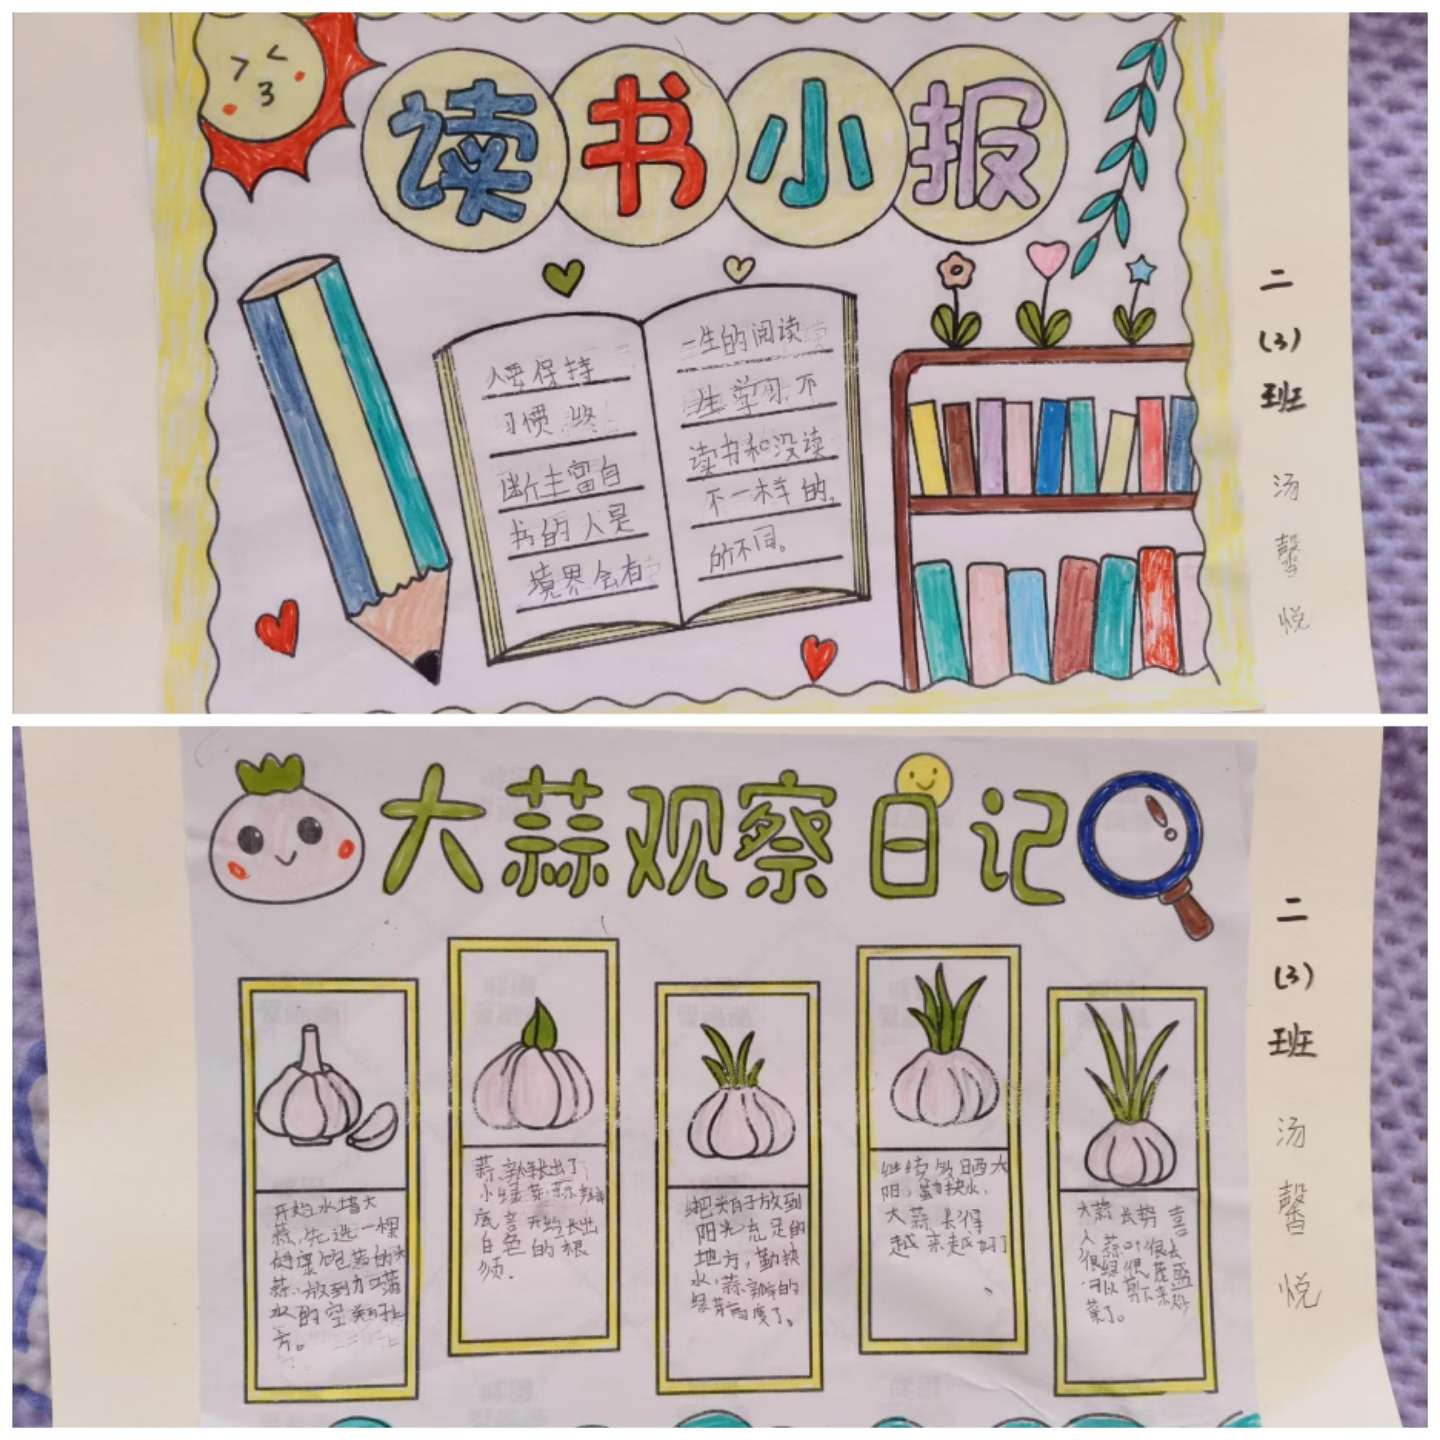 读书小报
人要保持
习惯 终
断主留自
书的人是
境界会有
一生的阅读
生学习 不
读书和没读
不一样的,
所不同。
二
(3)
班
汤
馨
悦
大蒜观察日记
开始水培大
蒜,先选一棵
健康饱满的大
蒜,放到加满
水的空
方。
蒜瓣长出了
小绿芽,蒜
底部开始长出
白色的根
须.
把 放到
阳光充足的
地方,勤换
水,蒜瓣的
绿芽高度了。
继续放晒太
阳,勤换水,
大蒜长得
越来越好了
大蒜长势喜
人,蒜叶很长
很绿很茂盛
可以剪下来炒
菜了。
二
(3)
班
汤
馨
悦